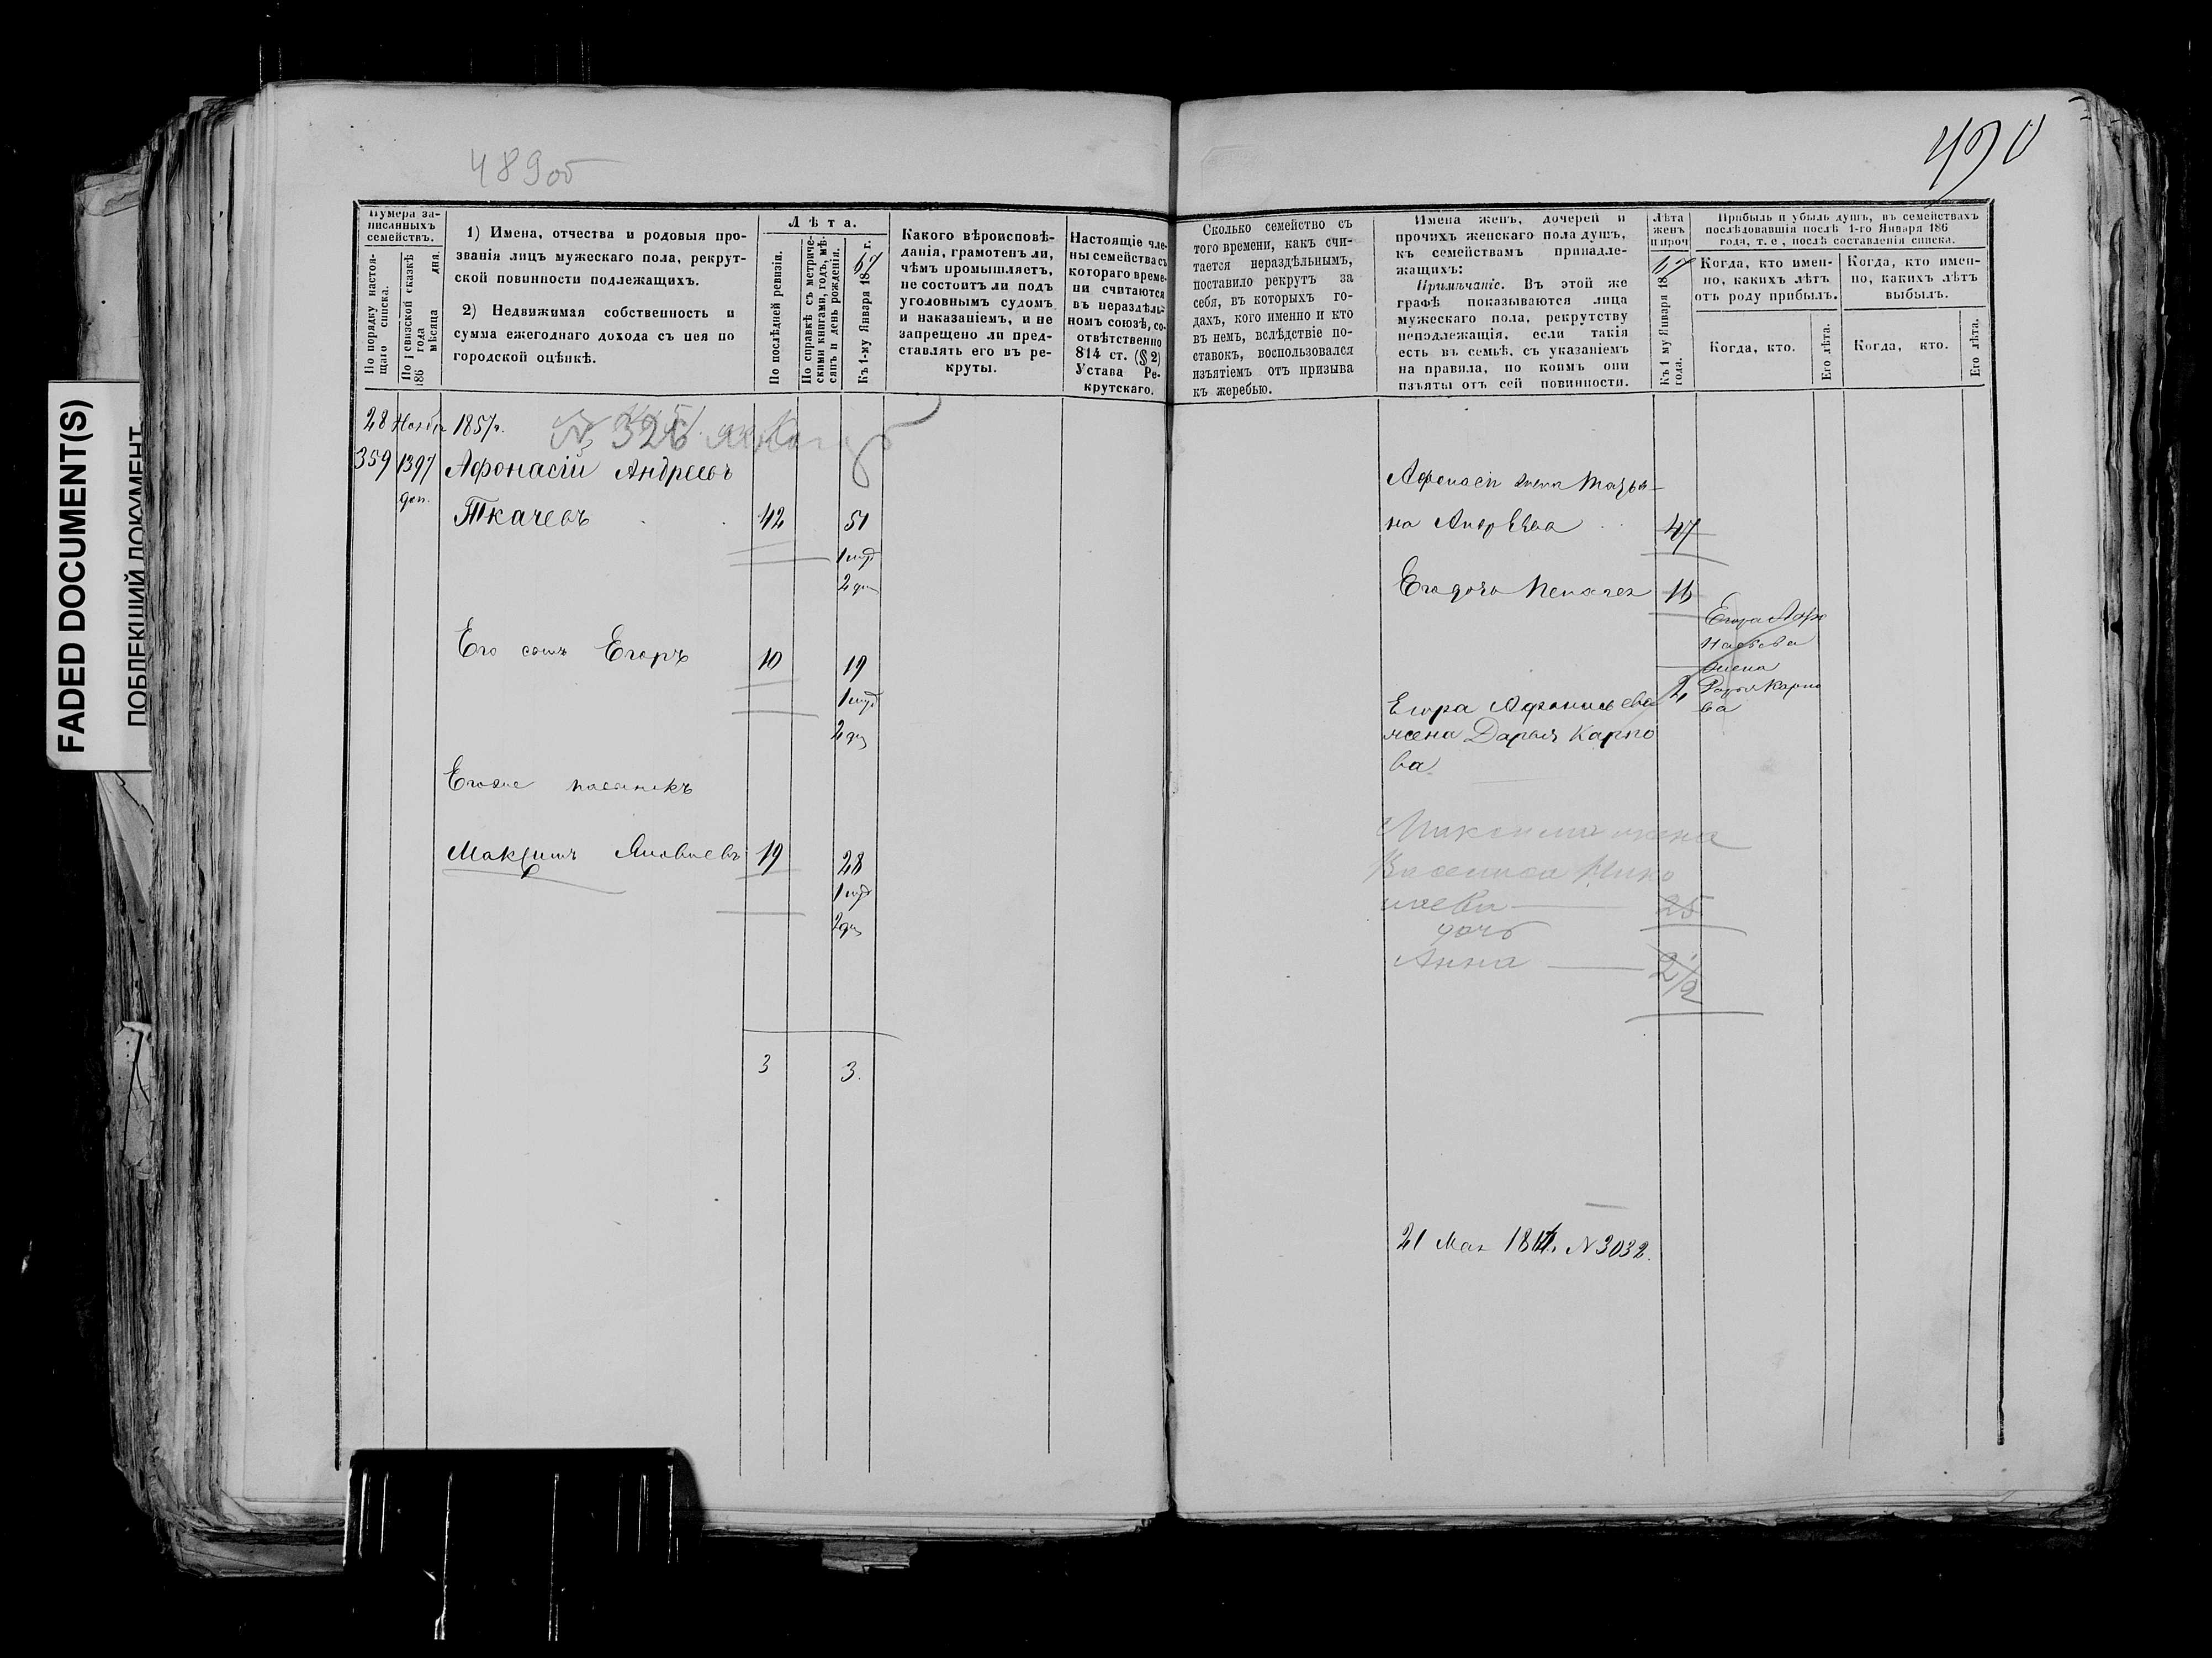 FADED DOCUMENT(S)
ПОБЛЕКШИЙ ДОКУМЕНТ
489об
Нумера за-
писанныхъ
семействъ.
По порядку настоя-
щаго списка.
По ревизской сказкѣ
186 года
мѣсяца дня.
1) Имена, отчества и родовыя про-
званія лицъ мужескаго пола, рекрут-
ской повинности подлежащихъ.
2) Недвижимая собственность и
сумма ежегоднаго дохода съ нея по
городской оцѣнкѣ.
Лѣта.
По послѣдней ревизіи.
По справкѣ съ метриче-
скими книгами, годъ, мѣ-
сяцъ и день рожденія.
Къ 1-му Января 1867 г.
Какого вѣроисповѣ-
данія, грамотенъ ли,
чѣмъ промышляетъ,
не состоитъ ли подъ
уголовнымъ судомъ
и наказаніемъ, и не
запрещено ли пред-
ставлять его въ ре-
круты.
Настоящіе чле-
ны семейства съ
котораго време-
ни считаются
въ нераздѣль-
номъ союзѣ, со-
отвѣтственно
814 ст. (§ 2)
Устава Ре-
крутскаго.
28 Нояб 1857г.
№ 326
359 1397 Афонасій Андреевъ
доп.
Ткачевъ 42 51
Его сынъ Егоръ 10 19
Егоже пасынокъ
Максимъ 19 28
3 3.
490
Сколько семейство съ
того времени, какъ счи-
тается нераздѣльнымъ,
поставило рекрутъ за
себя, въ которыхъ го-
дахъ, кого именно и кто
въ немъ, вслѣдствіе по-
ставокъ, воспользовался
изъятіемъ отъ призыва
къ жеребью.
Имена женъ, дочерей и
прочихъ женскаго пола душъ,
къ семействамъ принадле-
жащихъ:
Примѣчаніе. Въ этой же
графѣ показываются лица
мужескаго пола, рекрутству
неподлежащія, если такія
есть въ семьѣ, съ указаніемъ
на правила, по коимъ они
изъяты отъ сей повинности.
Лѣта
женъ
и проч
Къ 1 му Января 1867
года.
Прибыль и убыль душъ, въ семействахъ
послѣдовавшія послѣ 1-го Января 186
года, т. е., послѣ составленія списка.
Когда, кто имен-
но, какихъ лѣтъ
отъ роду прибылъ.
Когда, кто имен-
но, какихъ лѣтъ
выбылъ.
Когда, кто.
Его лѣта.
Когда, кто.
Его лѣта.
Афонасія жена Татья-
на Андреева 47
Его дочь 16
Егора Афо
насьева
жена
Дарья Карпо
ва
Егора Афонасьева
жена Дарья Карпо
ва
Максима жена
25
дочь
Анна 2 1/2
21 Мая N 3032.